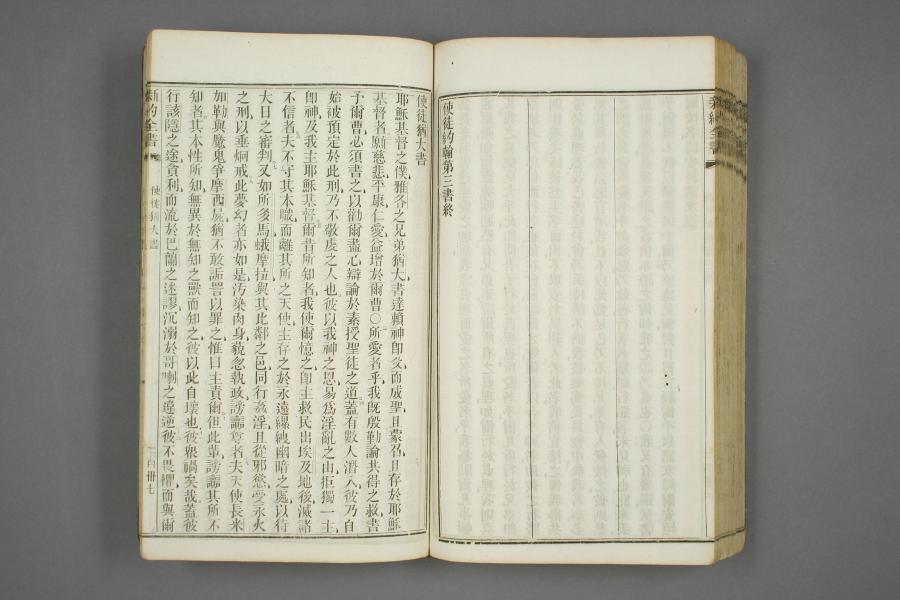 新約全書
使徒約翰第三書終
使徒猶大書
耶穌基督之僕雅各之兄弟猶大書達頼神卽父而成聖且蒙召且存於耶穌
基督者願慈悲平康仁愛益增於爾曹〇所愛者乎我旣殷勤論共得之救書
予爾曹必須書之以勸爾盡心辯論於素授聖徒之道蓋有數人潛入彼乃自
始被預定於此刑乃不敬虔之人也彼以我神之恩易爲淫亂之由拒獨一主
卽神及我主耶穌基督爾昔所知者我使爾憶之卽主救民出埃及地後滅諸
不信者夫不守其本職而離其所之天使主存之於永遠縲絏幽暗之處以待
大日之審判又如所多馬蛾摩拉與其比鄰之邑同行姦淫且從邪慾受永火
之刑以垂炯戒此夢幻者亦如是汚染肉身藐忽執政謗讟尊者夫天使長米
加勒與魔鬼爭摩西屍猶不敢詬詈以罪之惟曰主責爾但此輩謗讟其所不
知者其本性所知無異於無知之獸而知之彼以此自壞也彼禍矣哉蓋彼
行該隱之途貪利而流於巴蘭之迷謬沉溺於哥喇之違逆彼不畏懼而與爾
新約全書
使徒猶大書
百卅七